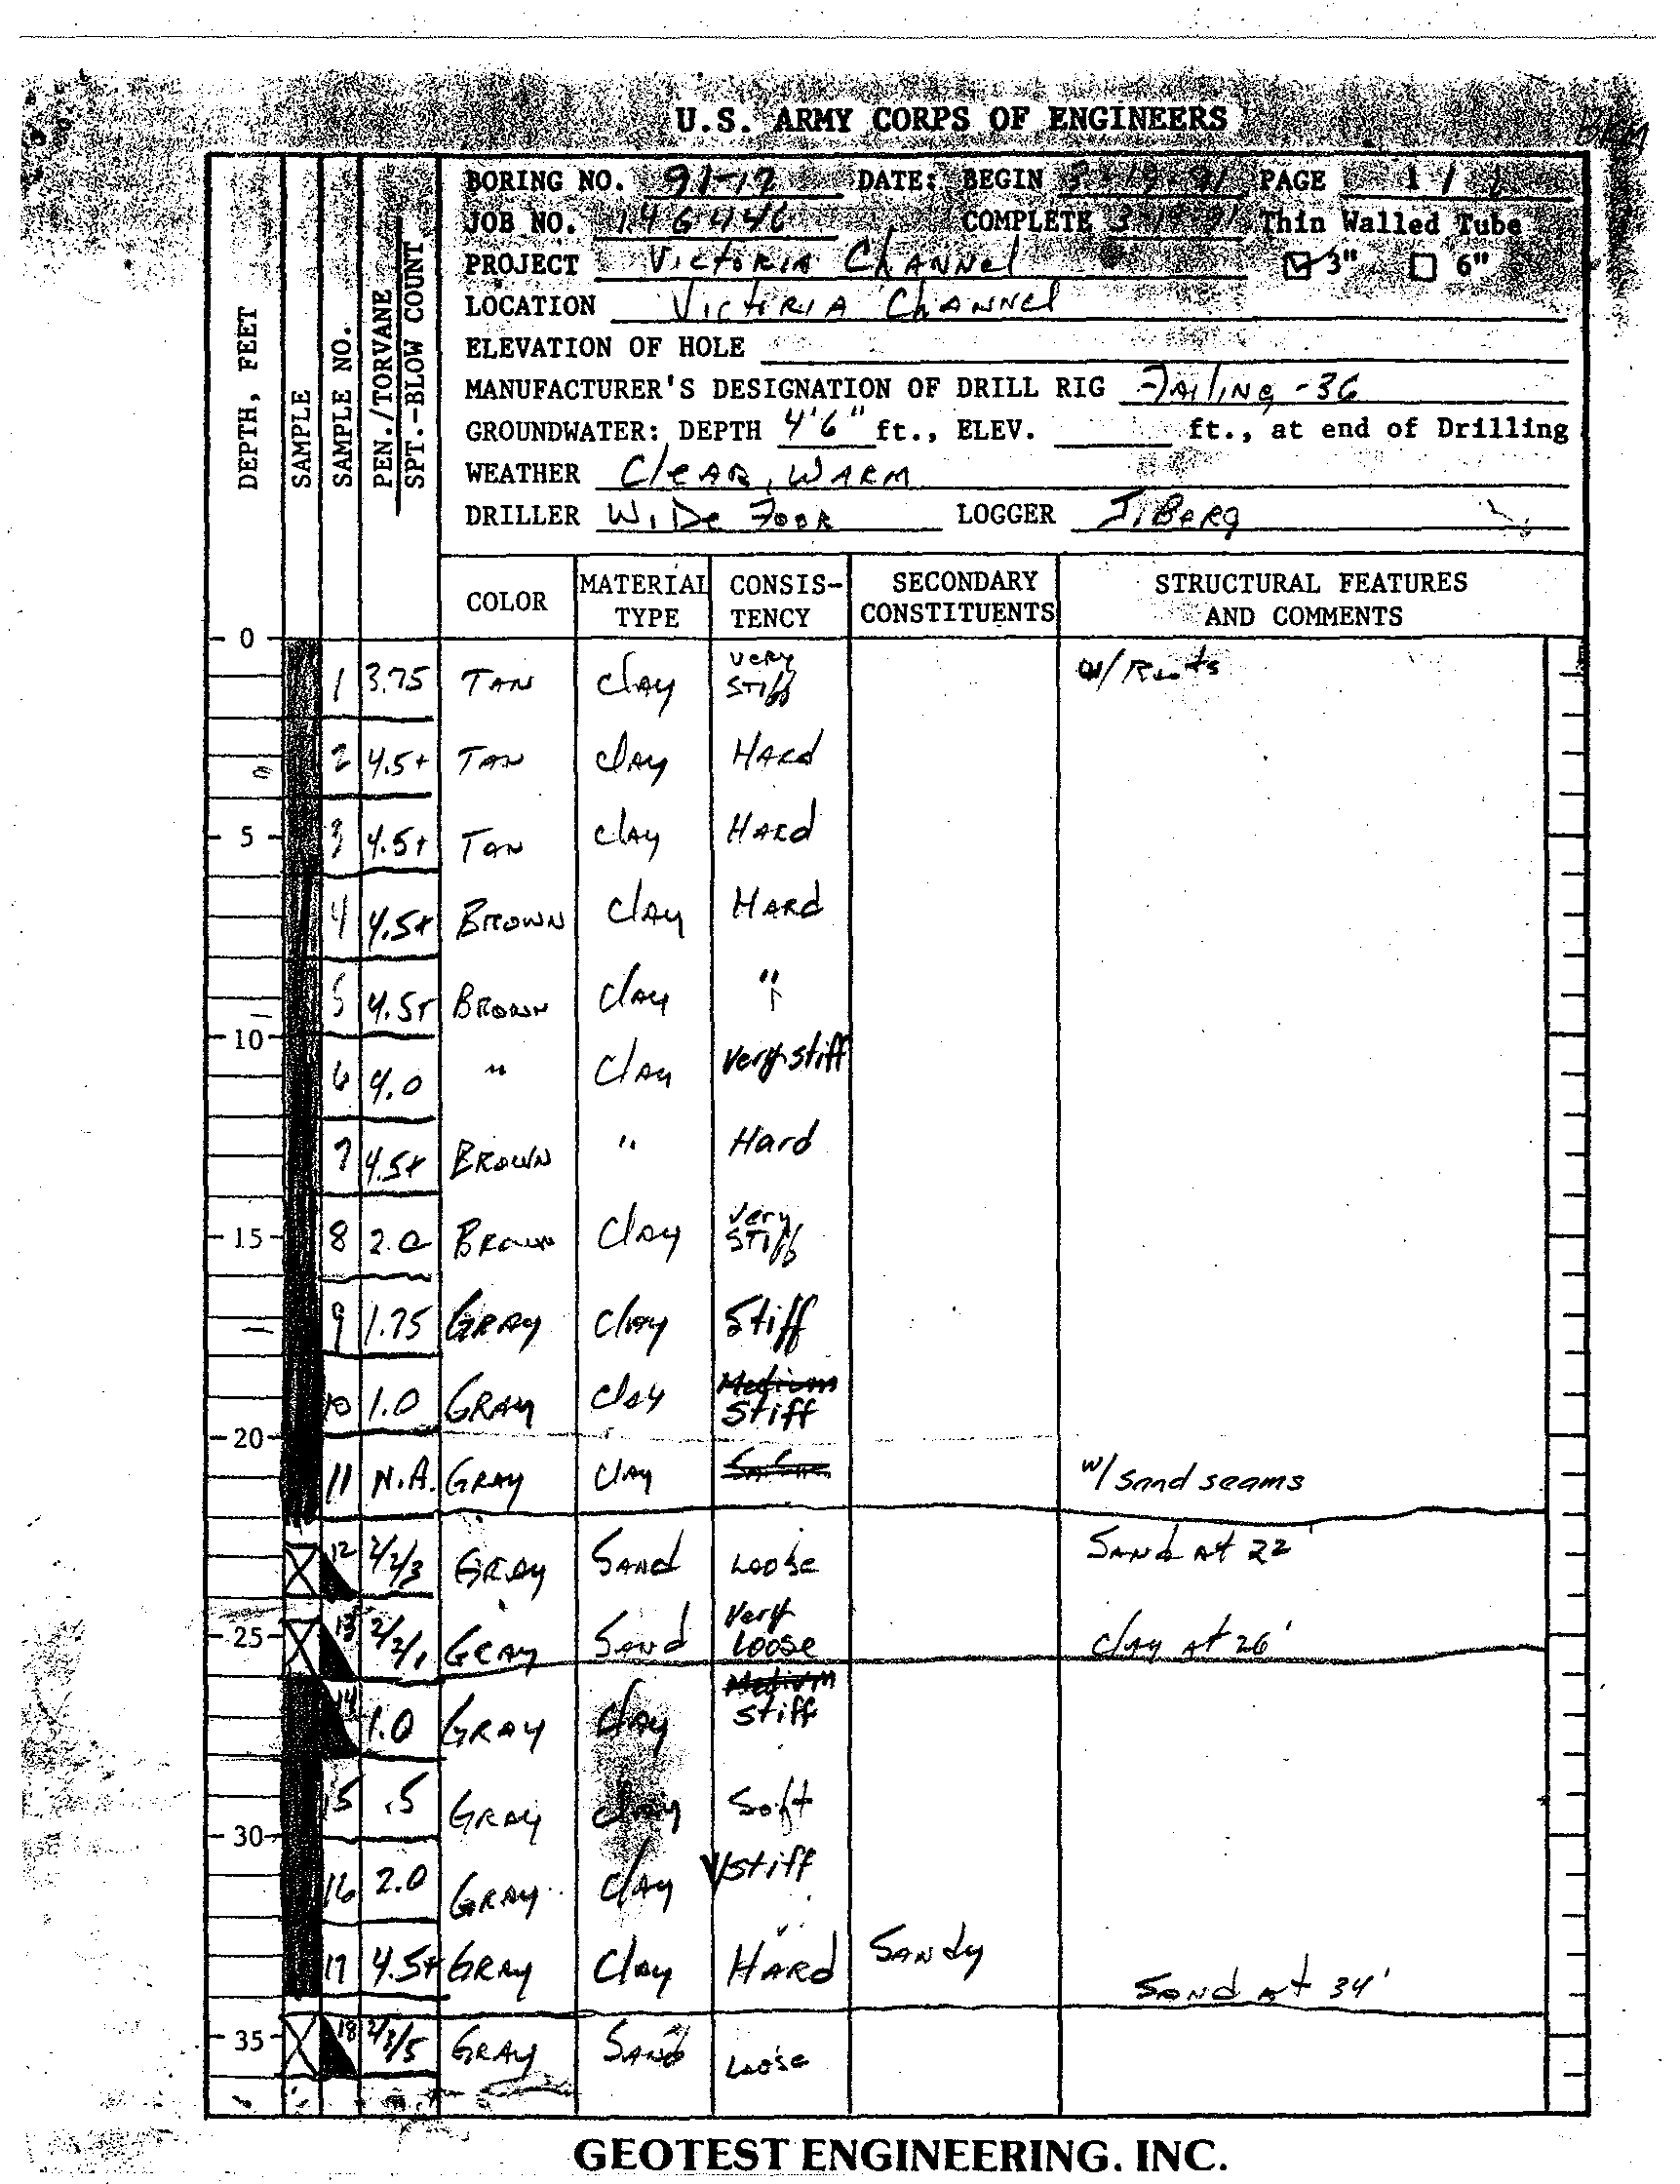 U.S. ARMY CORPS OF ENGINEERS
BORING NO. 91-17 DATE: BEGIN 3-19-91 PAGE 1 / 1
JOB NO. 146446 COMPLETE 3-19-91 Thin Walled Tube
PROJECT Victoria Channel 3" 6"
LOCATION Victoria Channel
ELEVATION OF HOLE
MANUFACTURER'S DESIGNATION OF DRILL RIG Failing-36
GROUNDWATER: DEPTH 4'6" ft., ELEV. ft., at end of Drilling
WEATHER Clear, Warm
DRILLER W. De Foor LOGGER J. Berg
DEPTH, FEET
SAMPLE
SAMPLE NO.
PEN./TORVANE
SPT.-BLOW COUNT
COLOR MATERIAL TYPE CONSIS-TENCY SECONDARY CONSTITUENTS STRUCTURAL FEATURES AND COMMENTS
0
1 3.75 Tan Clay very stiff w/ Roots
2 4.5+ Tan Clay Hard
5 3 4.5+ Tan Clay Hard
4 4.5+ Brown Clay Hard
5 4.5+ Brown Clay "
10
6 4.0 " Clay Very stiff
7 4.5+ Brown " Hard
15 8 2.0 Brown Clay Very stiff
9 1.75 Gray Clay Stiff
10 1.0 Gray Clay Medium Stiff
20
11 N.A. Gray Clay w/ sand seams
12 2/2/3 Gray Sand Loose Sand at 22'
25 13 2/2/1 Gray Sand Very Loose Clay at 26'
14 1.0 Gray Clay Medium stiff
15 .5 Gray Clay Soft
30
16 2.0 Gray Clay V/stiff
17 4.5+ Gray Clay Hard Sandy Sand at 34'
35 18 2/3/5 Gray Sand Loose
GEOTEST ENGINEERING. INC.